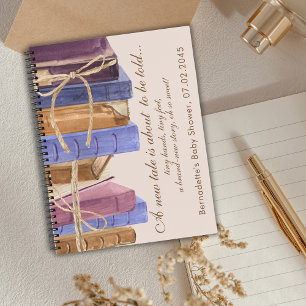 A new tale is about to be told...
tiny hands, tiny feet,
a brand-new story, oh so sweet!
Bernadette's Baby Shower, 07.02.2045